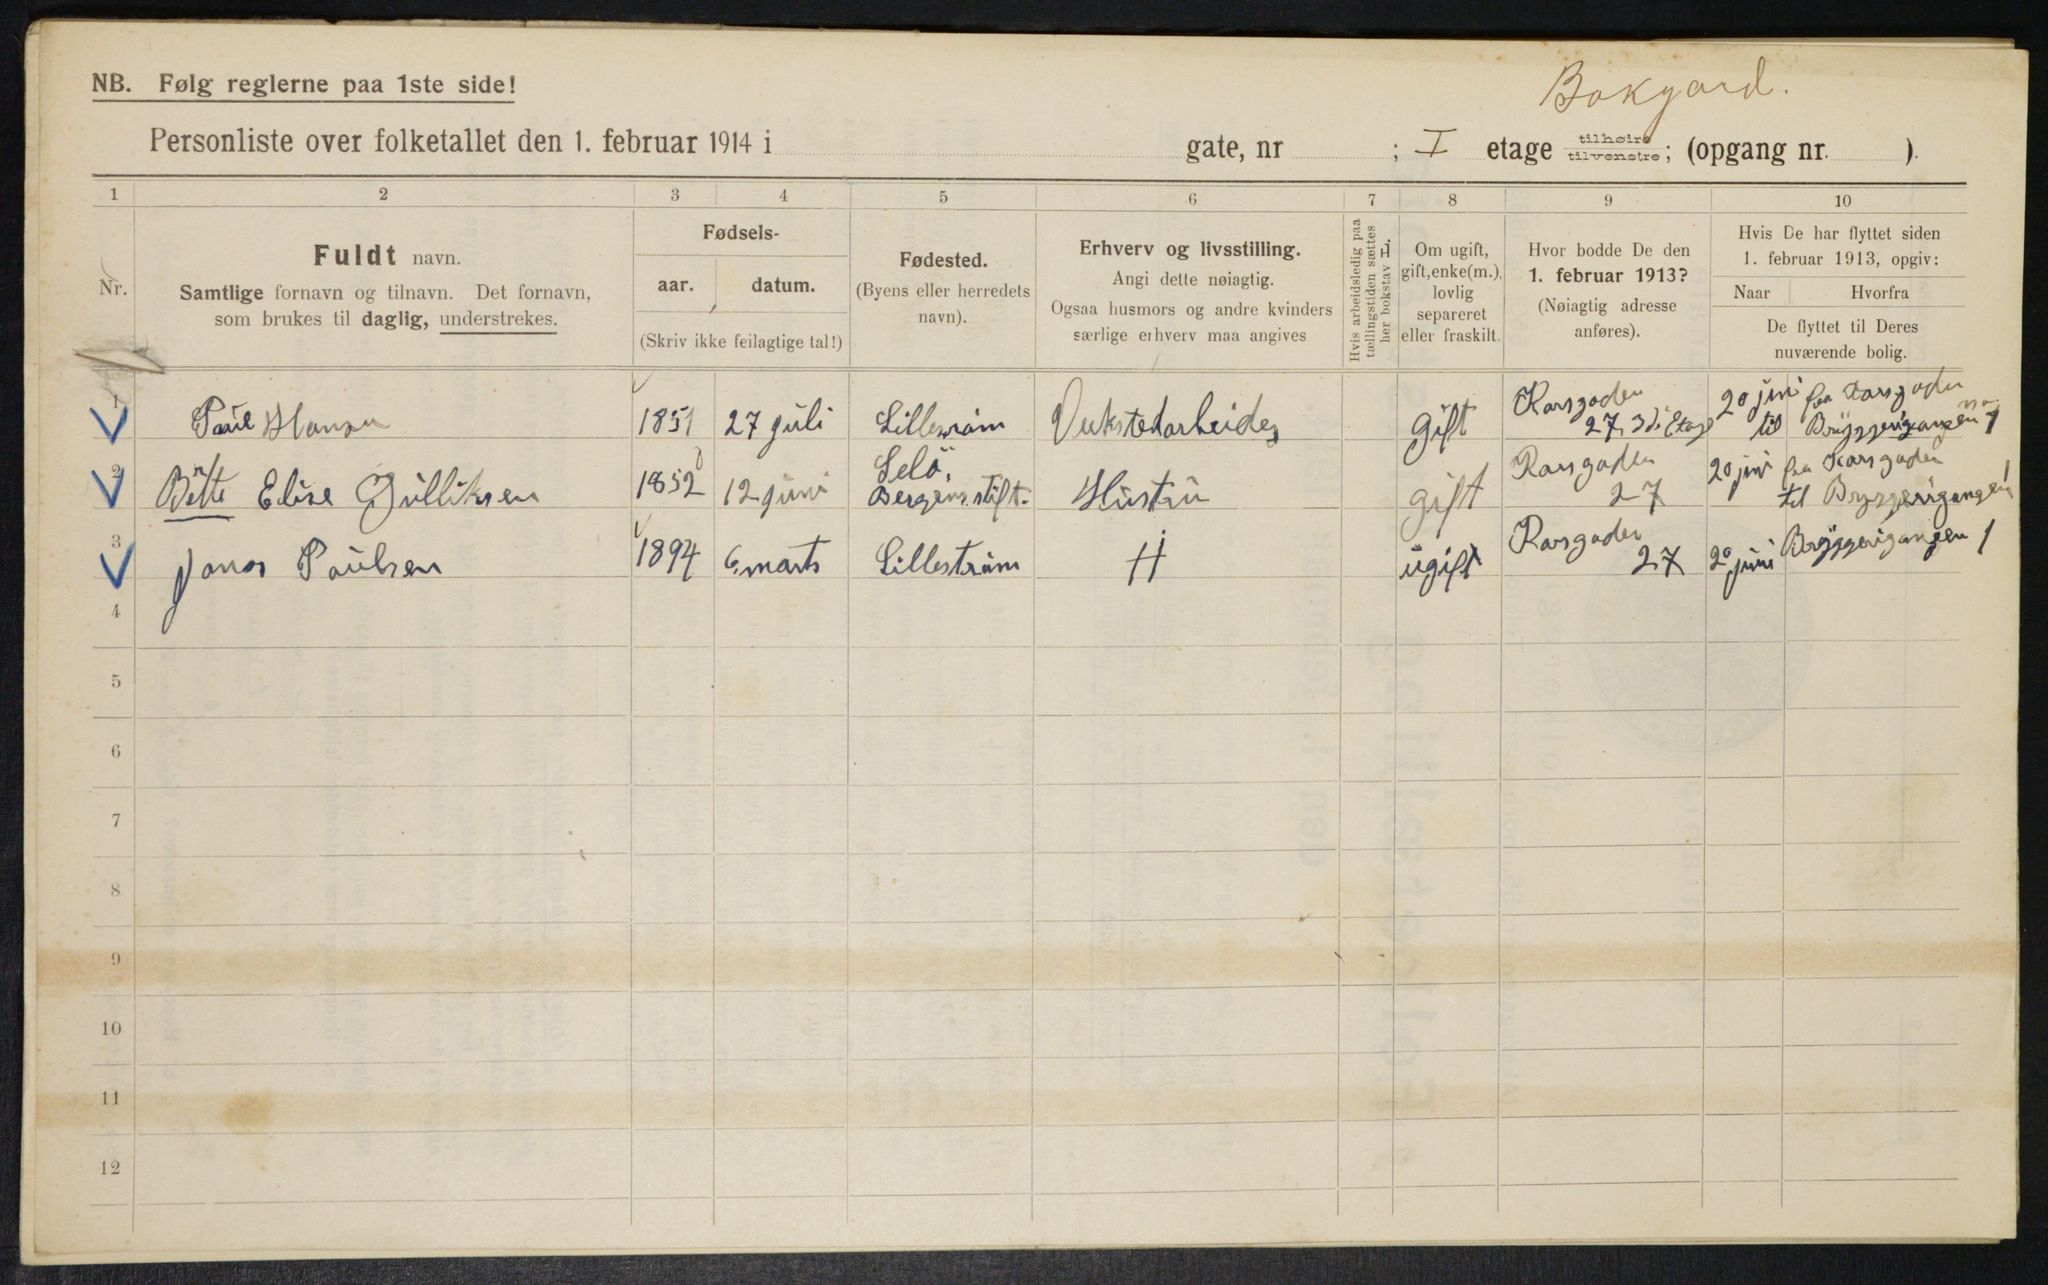 NB. Følg reglerne paa 1ste side!
Bakgard.
Personliste over folketallet den 1. februar 1914 i gate, nr ; I etage tilhøire tilvenstre; (opgang nr. ).
1 2 3 4 5 6 7 8 9 10
Nr.
Fuldt navn.
Samtlige fornavn og tilnavn. Det fornavn,
som brukes til daglig, understrekes.
Fødsels-
aar. datum.
(Skriv ikke feilagtige tal!)
Fødested.
(Byens eller herredets
navn).
Erhverv og livsstilling.
Angi dette nøiagtig.
Ogsaa husmors og andre kvinders
særlige erhverv maa angives
Hvis arbeidsledig paa
tællingstiden sættes
her bokstav H.
Om ugift,
gift, enke(m.),
lovlig
separeret
eller fraskilt.
Hvor bodde De den
1. februar 1913?
(Nøiagtig adresse
anføres).
Hvis De har flyttet siden
1. februar 1913, opgiv:
Naar Hvorfra
De flyttet til Deres
nuværende bolig.
1 Paul Hansen 1851 27 juli Lillestrøm gift Korsgaden 27, 3di Etage 20 juni til fra Korsgaden Bryggerigangen no 1
2 Elise Gulliksen 1852 12 juni Selö, Bergens stift. Hustru gift Korsgaden 27 20 juni fra Korsgaden til Bryggerigangen 1
3 Jonas Paulsen 1894 6 marts Lillestrøm H ugift Korsgaden 27 20 juni Bryggerigangen 1
4
5
6
7
8
9
10
11
12